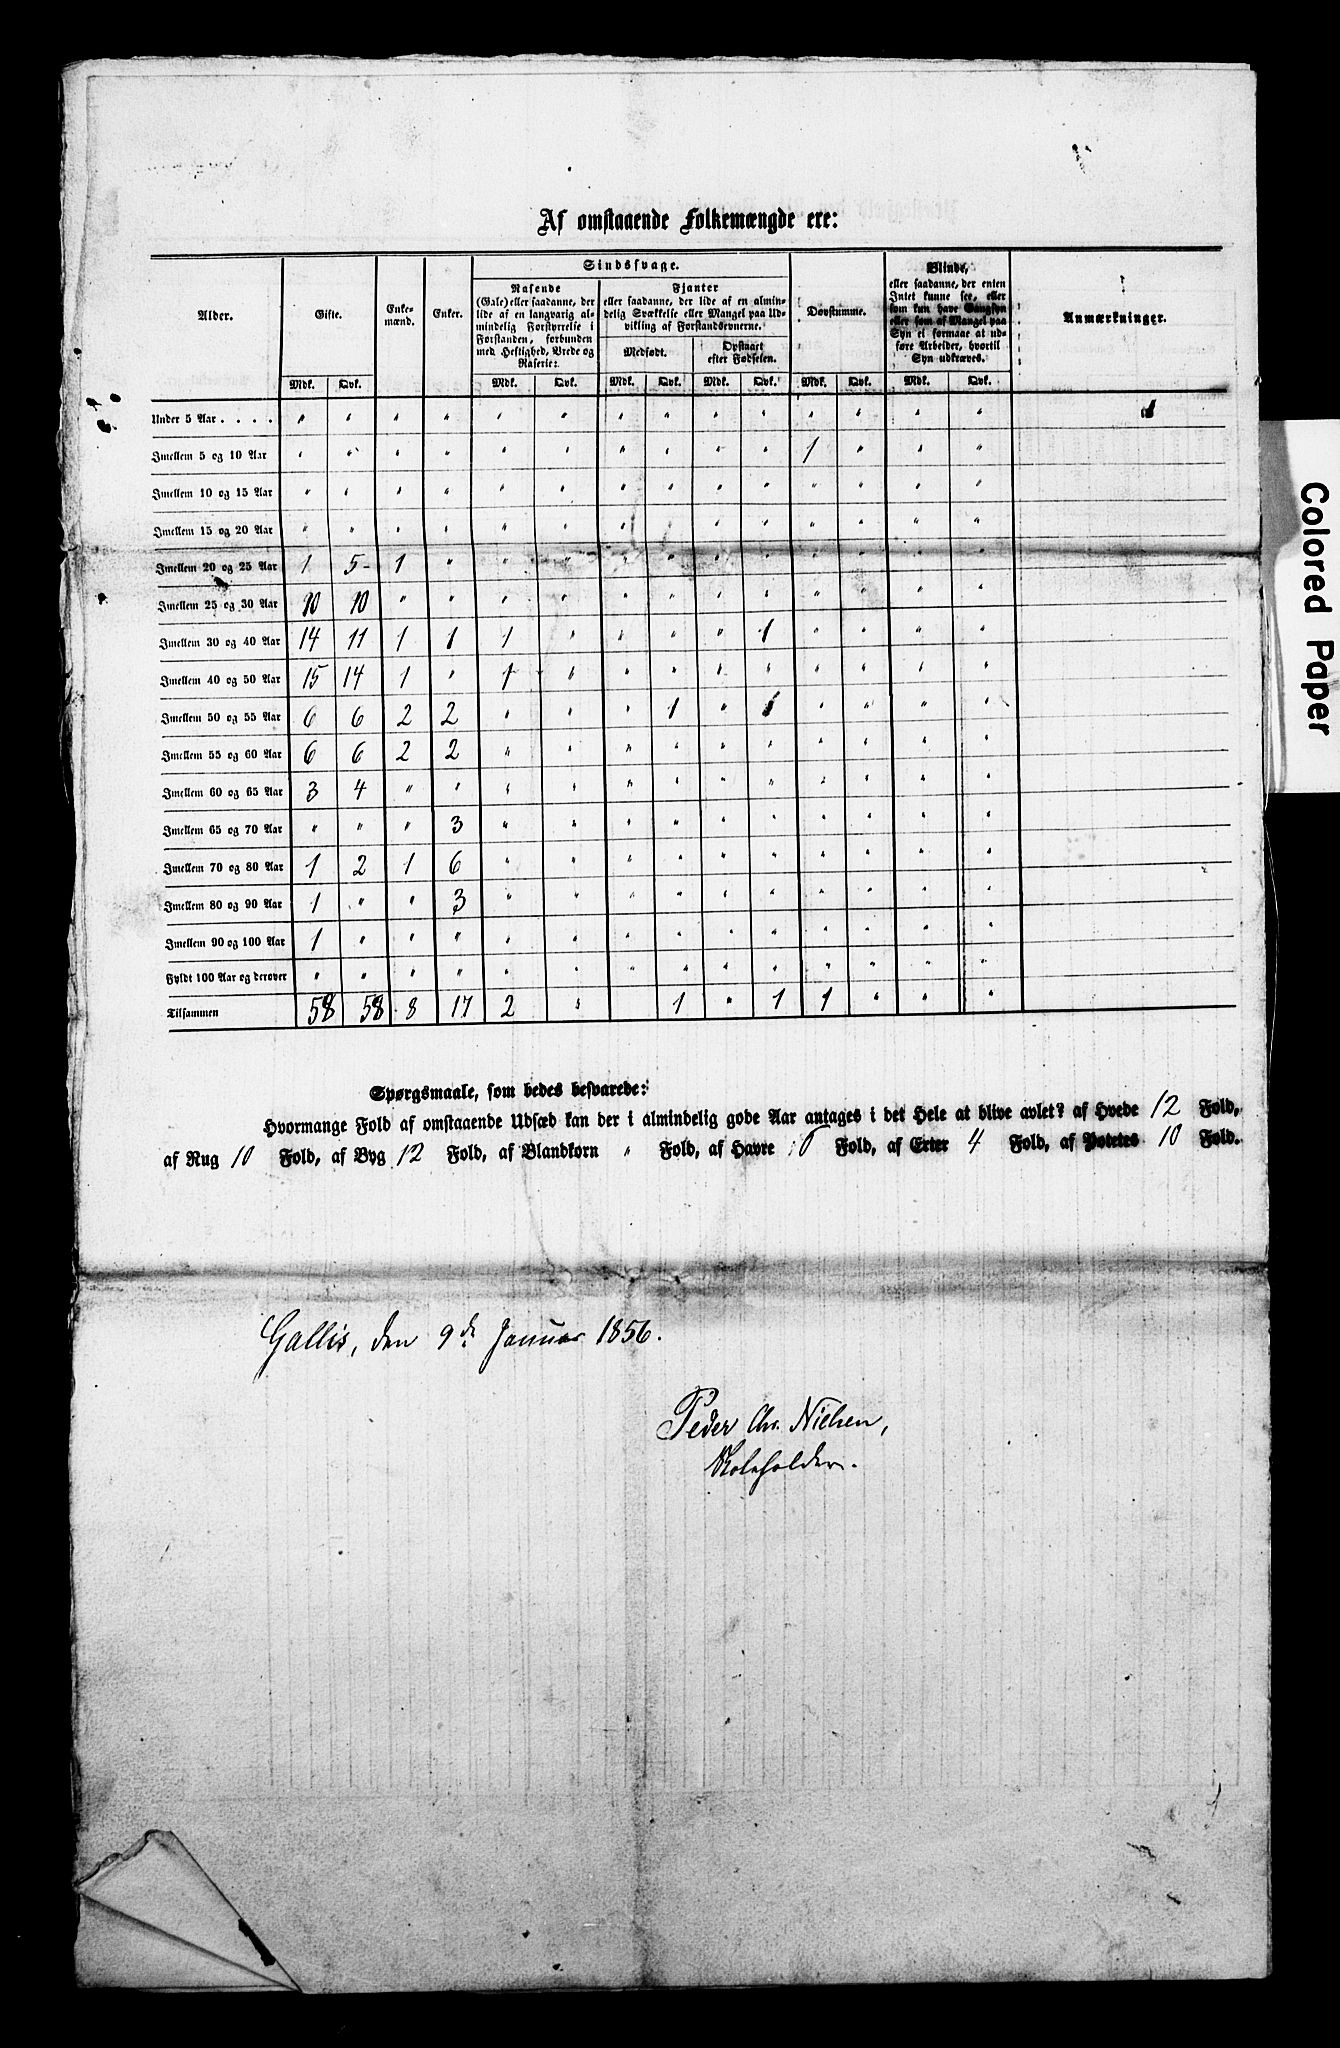 Af omstaaende Folkemængde ere:
Alder. Gifte. Enke-mænd. Enker. Sindssvage. Døvstumme. Blinde, Anmærkninger.
Rasende (Gale) eller saadanne, der lide af en langvarig almindelig Forstyrrelse i Forstanden, forbunden med Heftighed, Vrede og Raseri:
Fjanter eller saadanne, der lide af en almindelig Svækkelse eller Mangel paa Udvikling af Forstandsevnerne.
Medfødt. Opstaaet efter Fødselen.
eller saadanne, der enten Intet kunne see, eller som kun have Gangsyn eller som af Mangel paa Syn ei formaae at udføre Arbeider, hvortil Syn udkræves.
Mdk. Qvk. Mdk. Qvk. Mdk. Qvk. Mdk. Qvk. Mdk. Qvk. Mdk. Qvk.
Under 5 Aar . . . . " " " " " " " " " " " " " "
Imellem 5 og 10 Aar " " " " " " " " " " 1 " " "
Imellem 10 og 15 Aar " " " " " " " " " " " " " "
Imellem 15 og 20 Aar " " " " " " " " " " " " " "
Imellem 20 og 25 Aar 1 5 1 " " " " " " " " " " "
Imellem 25 og 30 Aar 10 10 " " " " " " " " " " " "
Imellem 30 og 40 Aar 14 11 1 1 1 " " " " 1 " " " "
Imellem 40 og 50 Aar 15 14 1 " 1 " " " " " " " " "
Imellem 50 og 55 Aar 6 6 2 2 " " " 1 " 1 " " " "
Imellem 55 og 60 Aar 6 6 2 2 " " " " " " " " " "
Imellem 60 og 65 Aar 3 4 " " " " " " " " " " " "
Imellem 65 og 70 Aar " " " 3 " " " " " " " " " "
Imellem 70 og 80 Aar 1 2 1 6 " " " " " " " " " "
Imellem 80 og 90 Aar 1 " " 3 " " " " " " " " " "
Imellem 90 og 100 Aar 1 " " " " " " " " " " " " "
Fyldt 100 Aar og derover " " " " " " " " " " " " " "
Tilsammen 58 58 8 17 2 " 1 " 1 1 " " "
Spørgsmaale, som bedes besvarede:
Hvormange Fold af omstaaende Udsæd kan der i almindelig gode Aar antages i det Hele at blive avlet? af Hvede 12 Fold,
af Rug 10 Fold, af Byg 12 Fold, af Blandkorn " Fold, af Havre Fold, af Erter 4 Fold, af Potetes 10 Fold.
Gallis, den 9de Januar 1856.
Peder Chr. Nielsen,
Skoleholder.
Colored Paper